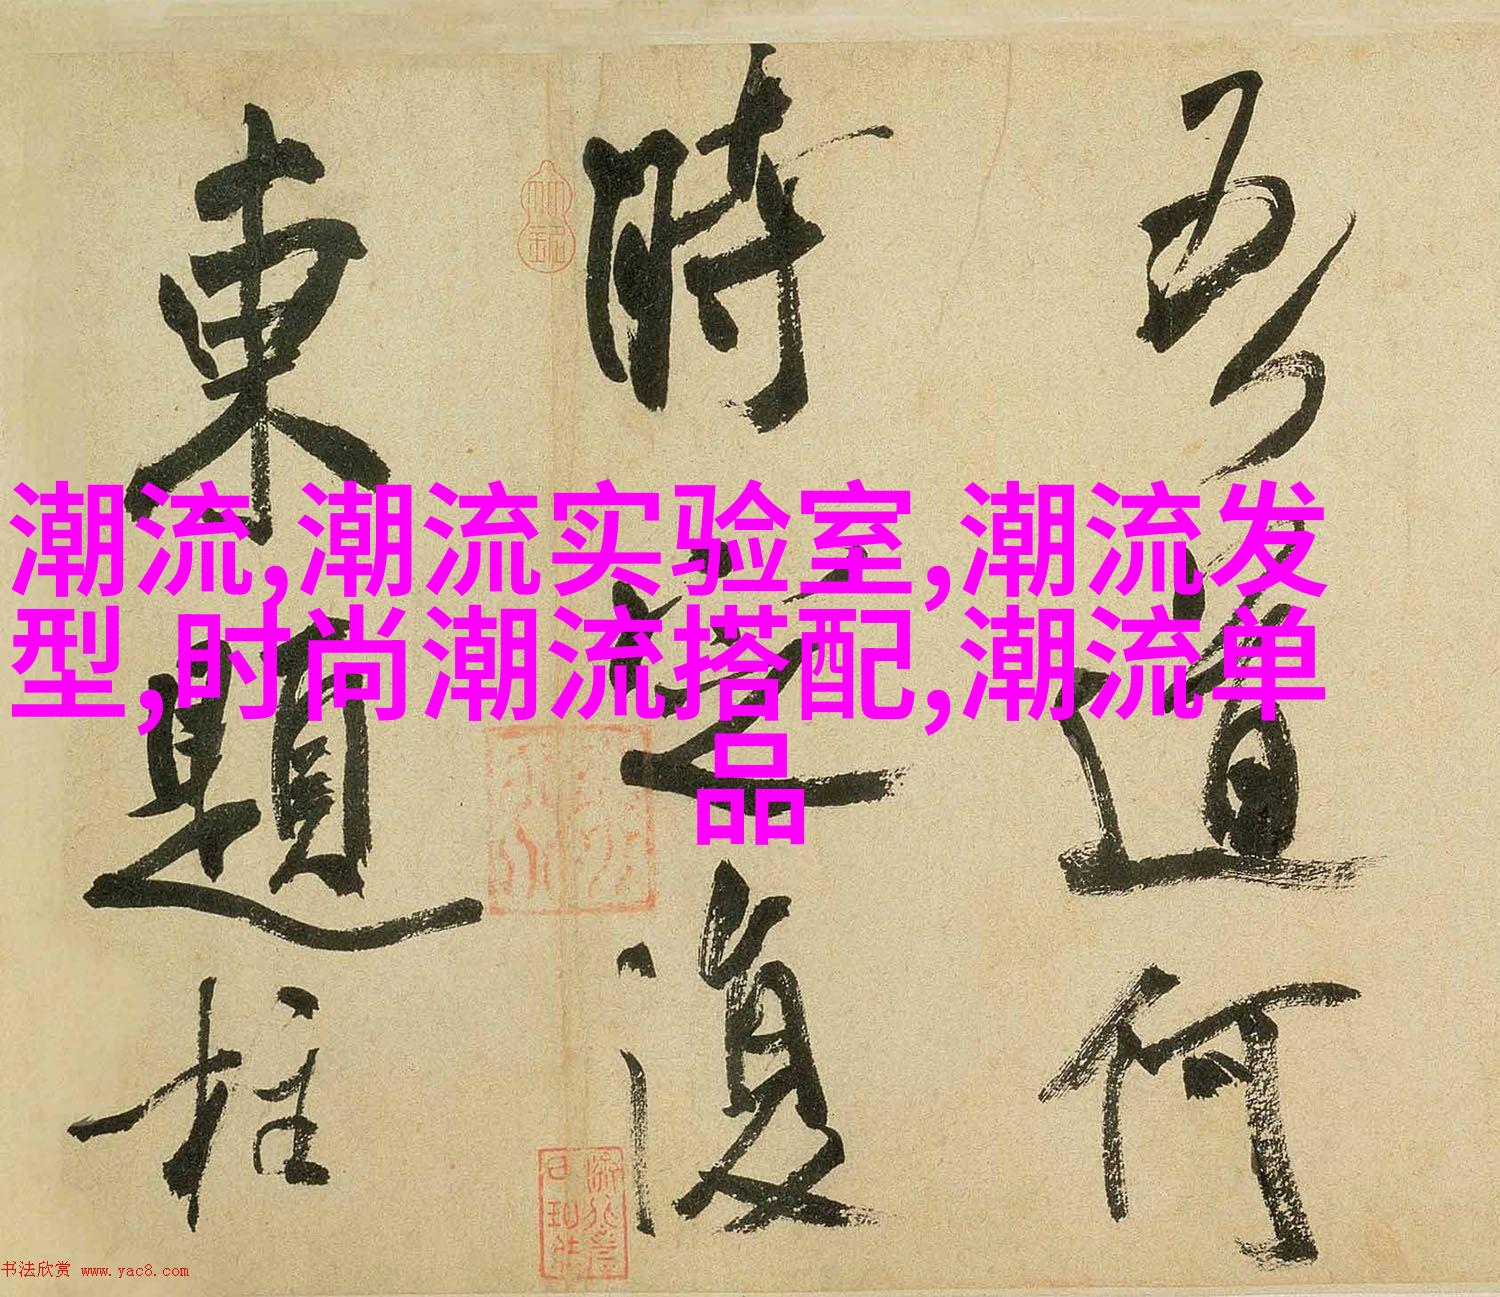 吾道何
時定復
東題柱
潮流,潮流实验室,潮流发
型,时尚潮流搭配,潮流单
品
书法欣赏 www.yac8.com